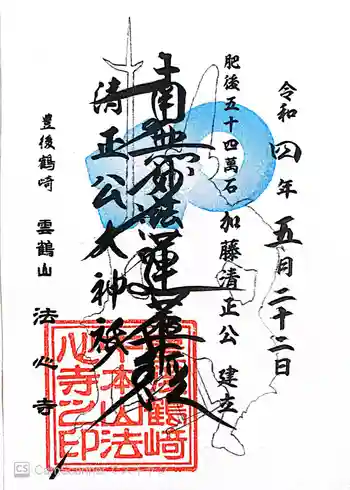 令和四年五月二十二日
肥後五十四萬石 加藤清正公 建立
南無妙法蓮華経
清正公大神祇
豊後鶴崎 雲鶴山 法心寺
CS CamScanner